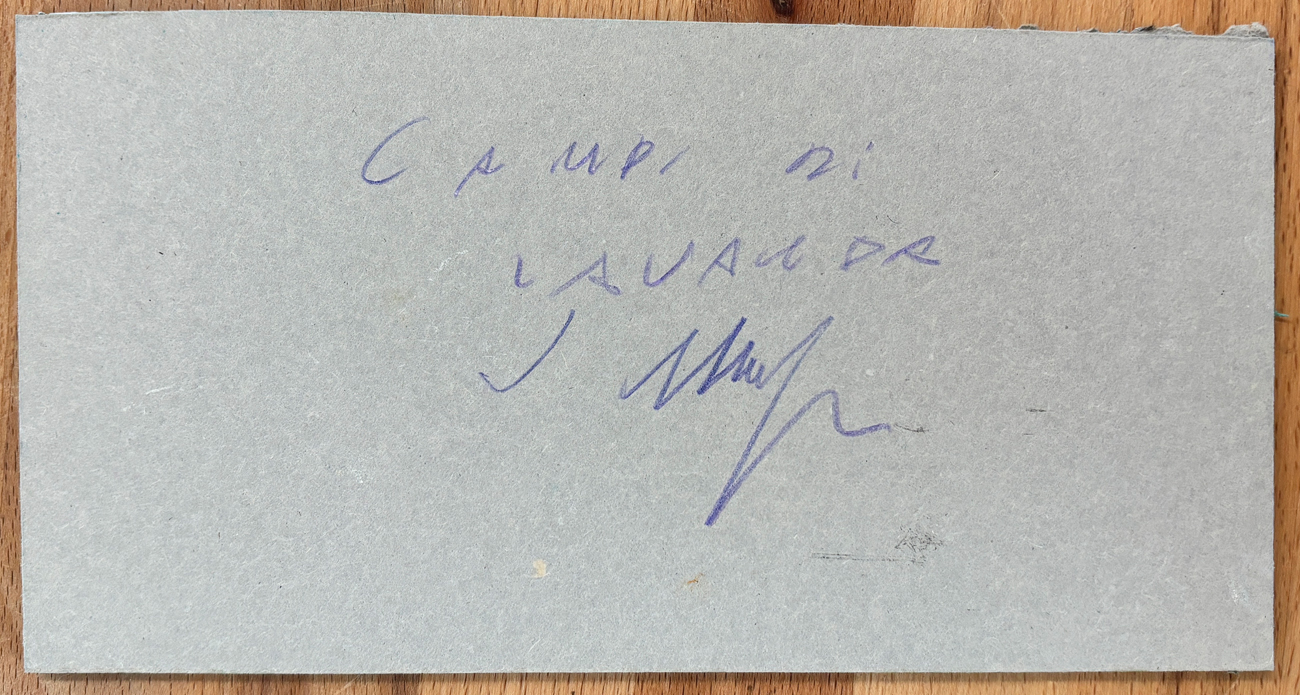 CAMPi Di
LAVANDA